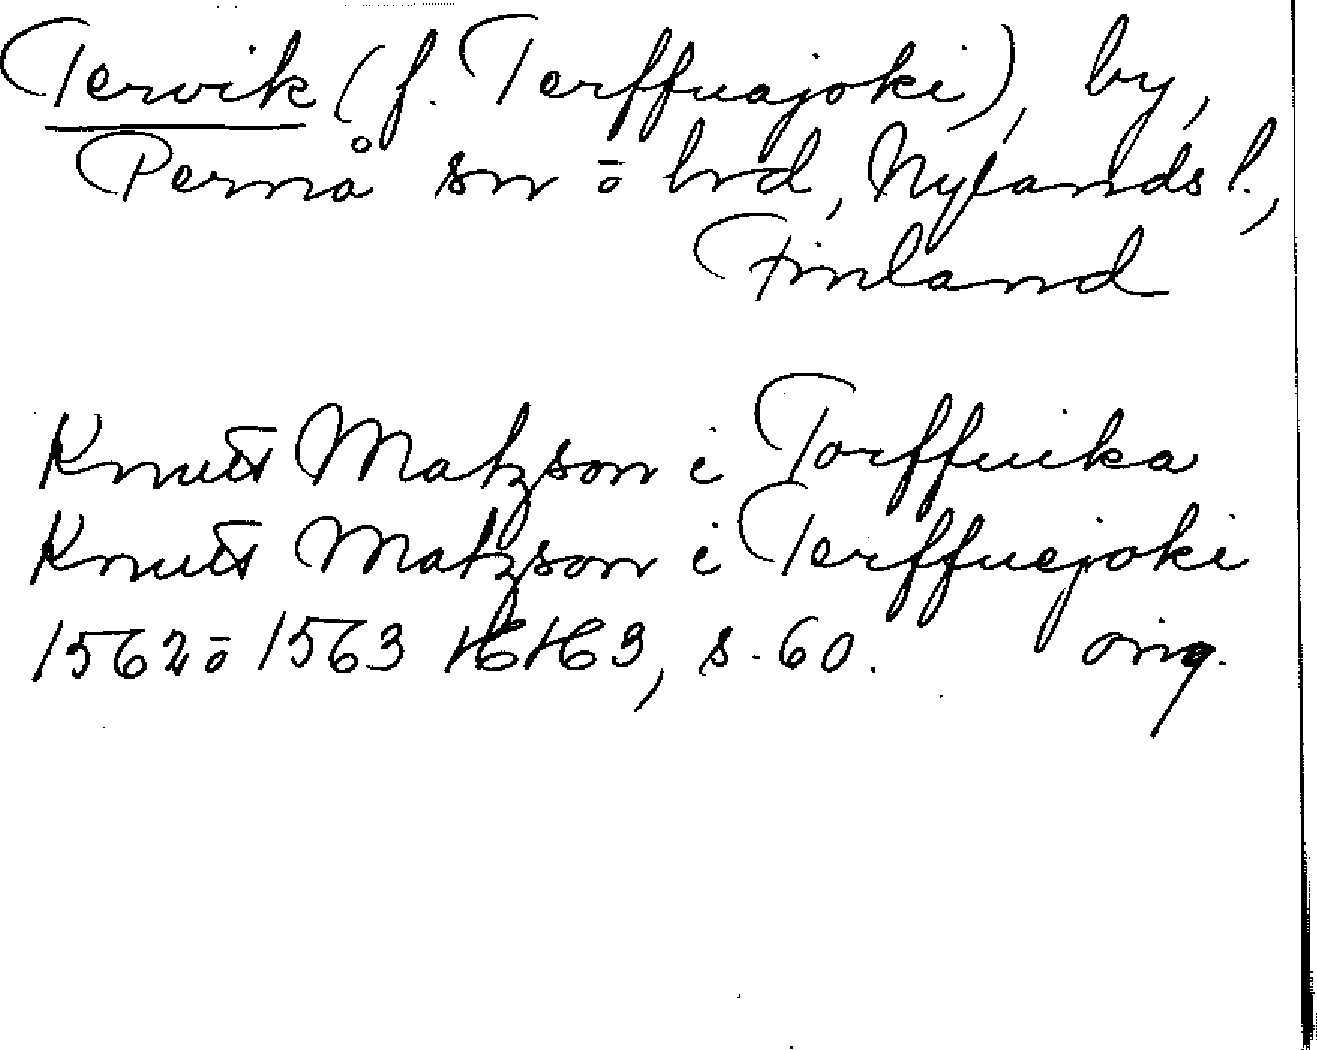 Tervik (f. Terffuajoki), by,
Pernå sn ō hrd, Nylands l.,
Finland
Knutt Matzson i Torffuika
Knutt Matzson i Terffuejoki
1562 ō 1563 s. 60. orig.